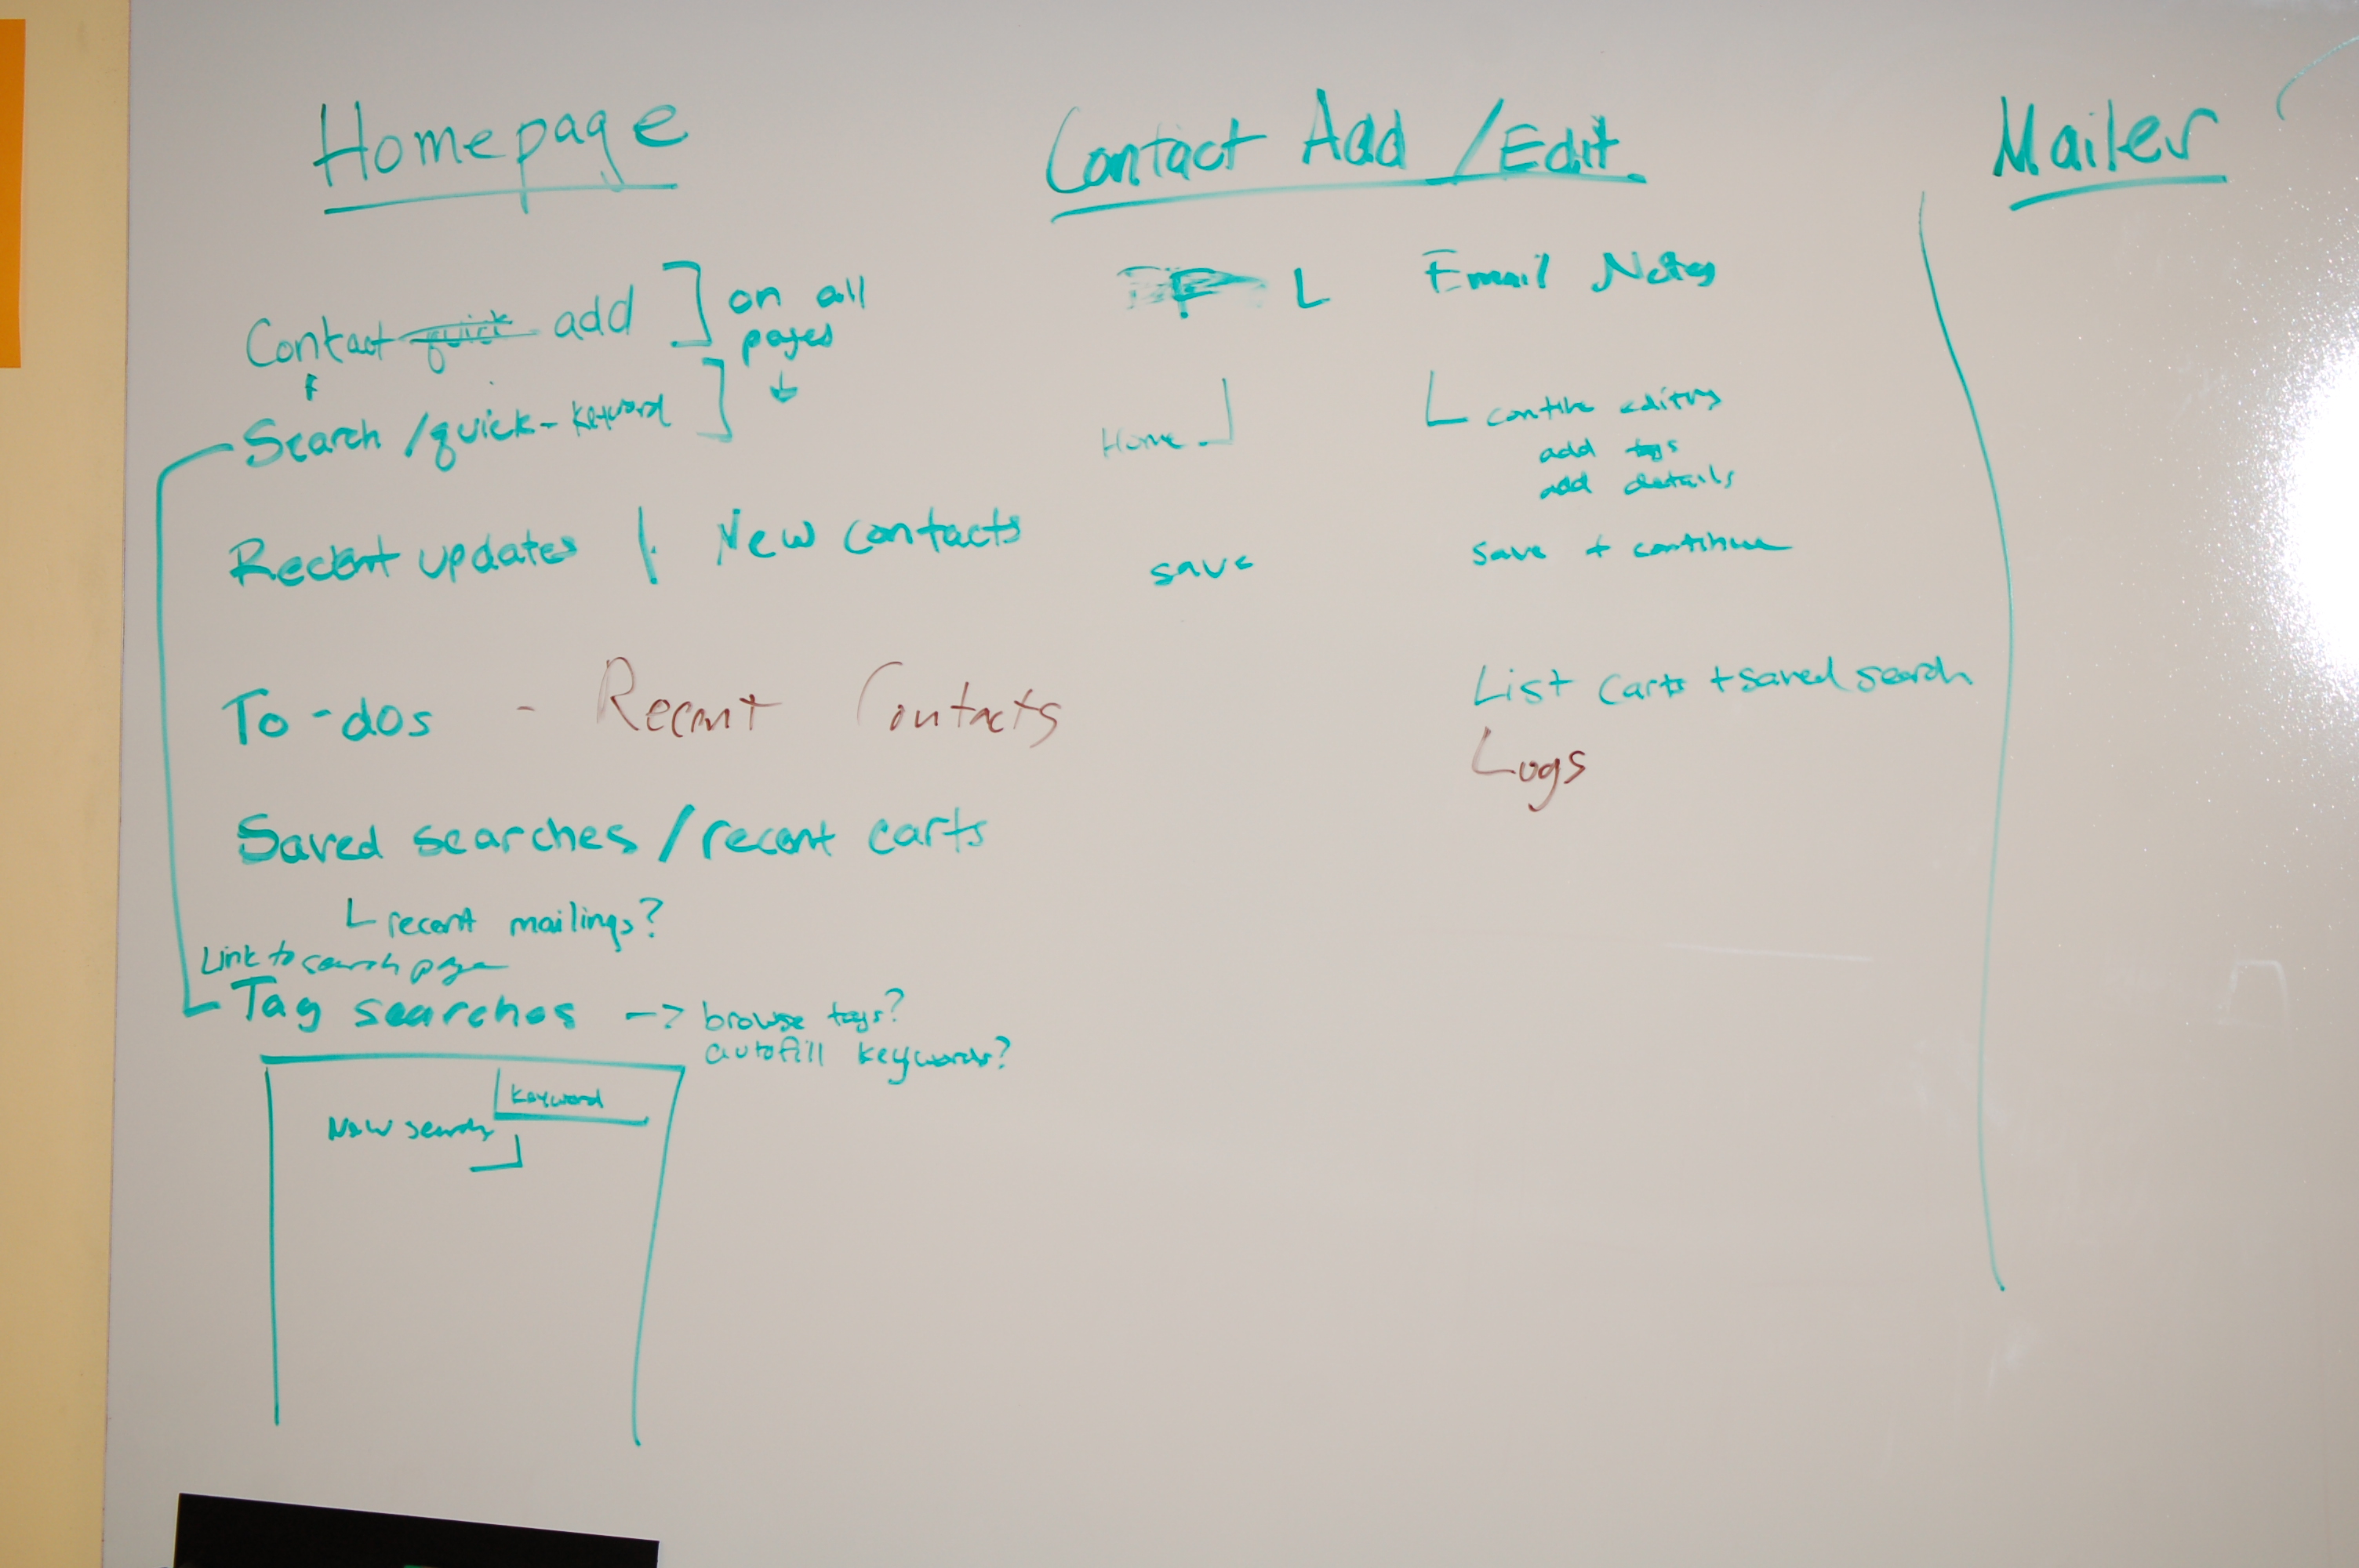 Homepage
Contact quick add ] on all pages
Search / quick - keyword ]
Recent updates | New contacts
To-dos - Recent Contacts
Saved searches / recent carts
recent mailings?
Link to search page
Tag searches -> browse tags?
autofill keywords?
keyword
New search
Contact Add / Edit
Email Notes
Home
continue editing
add tags
add details
save
save + continue
List carts + saved search
Logs
Mailer